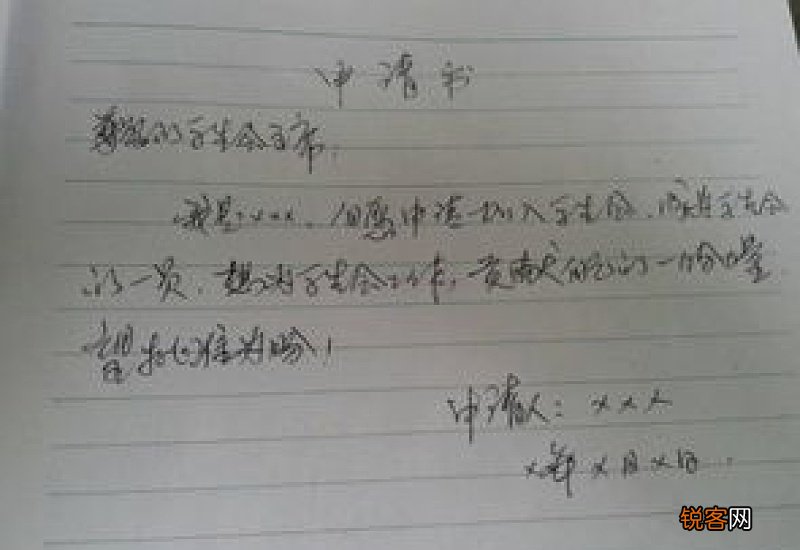 申请书
尊敬的学生会主席,
我是xxx、自愿申请加入学生会,成为学生会
的一员,想为学生会工作,贡献自己的一份力量
望批准为盼!
申请人:xxx
x年x月x日.
锐客网